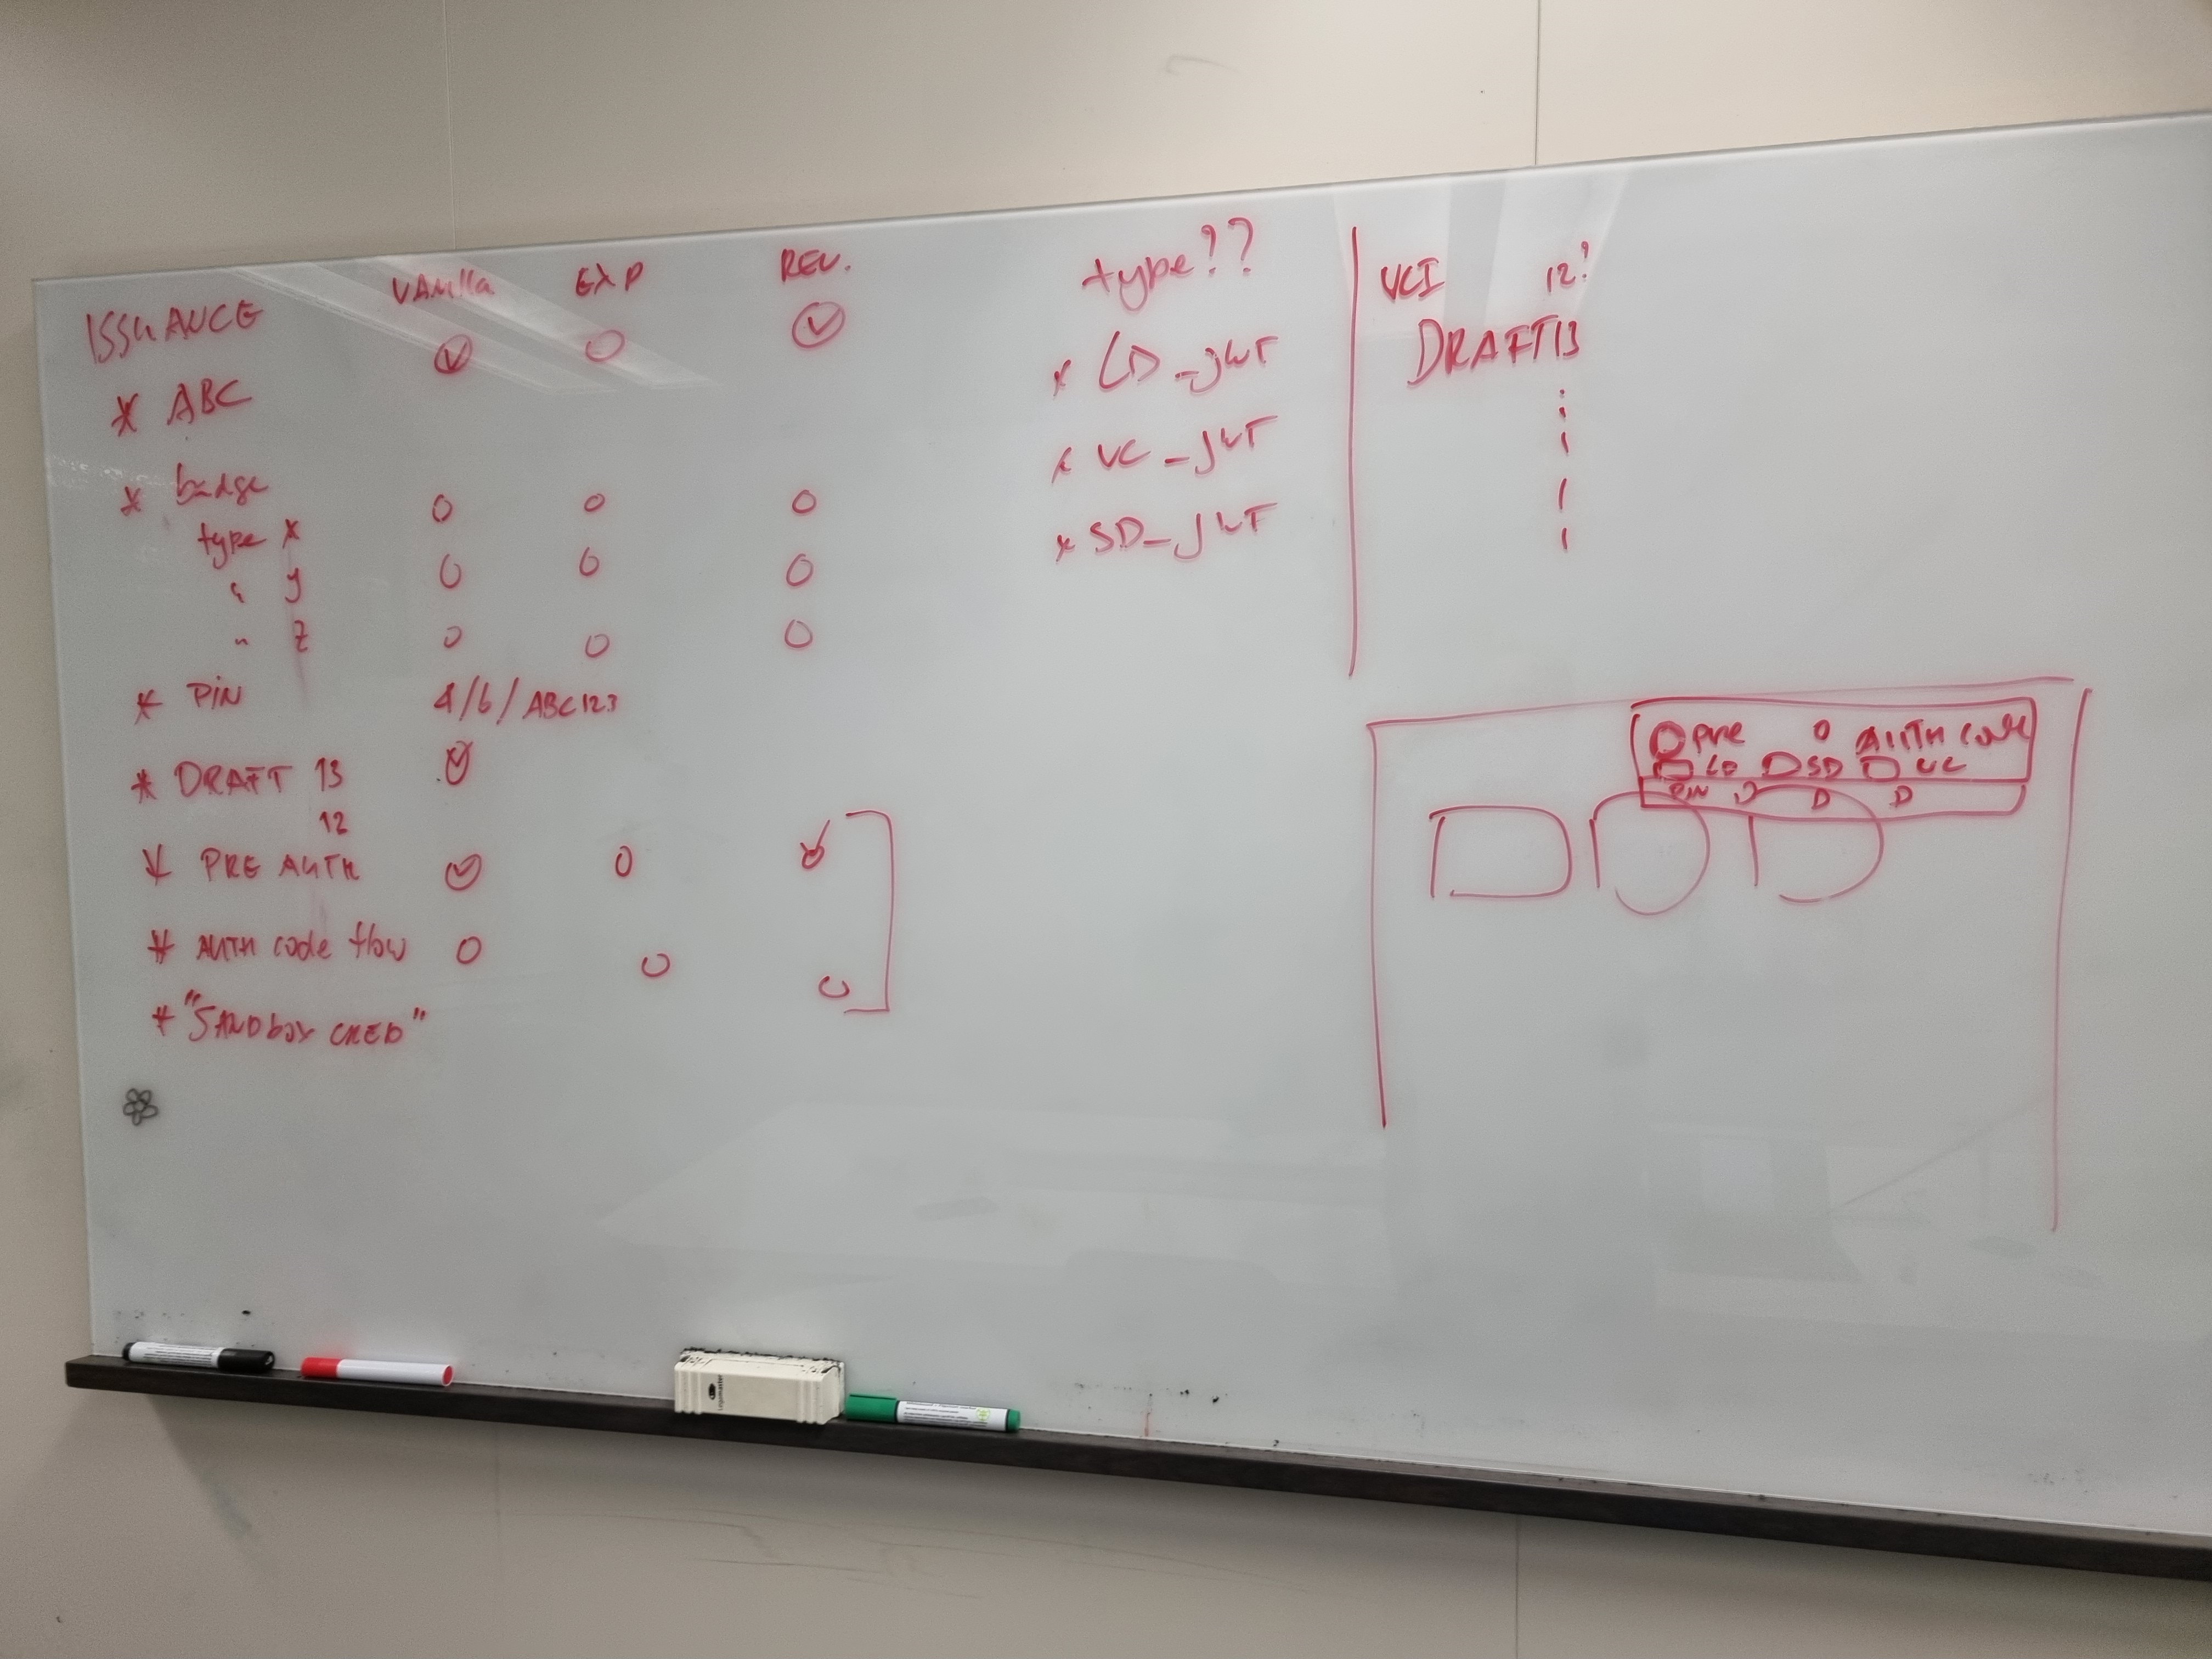 ISSUANCE VANilla EXP REV.
* ABC
* badge
type x
" y
" z
* PIN 4/6/ABC123
* DRAFT 13
12
* PRE AUTH
* AUTH code flow
* "SANDbox CRED"
type??
* LD_jwT
* VC_jwT
* SD_jwT
VCI 12?
DRAFT13
PRE AUTH code
LD SD VC
PIN